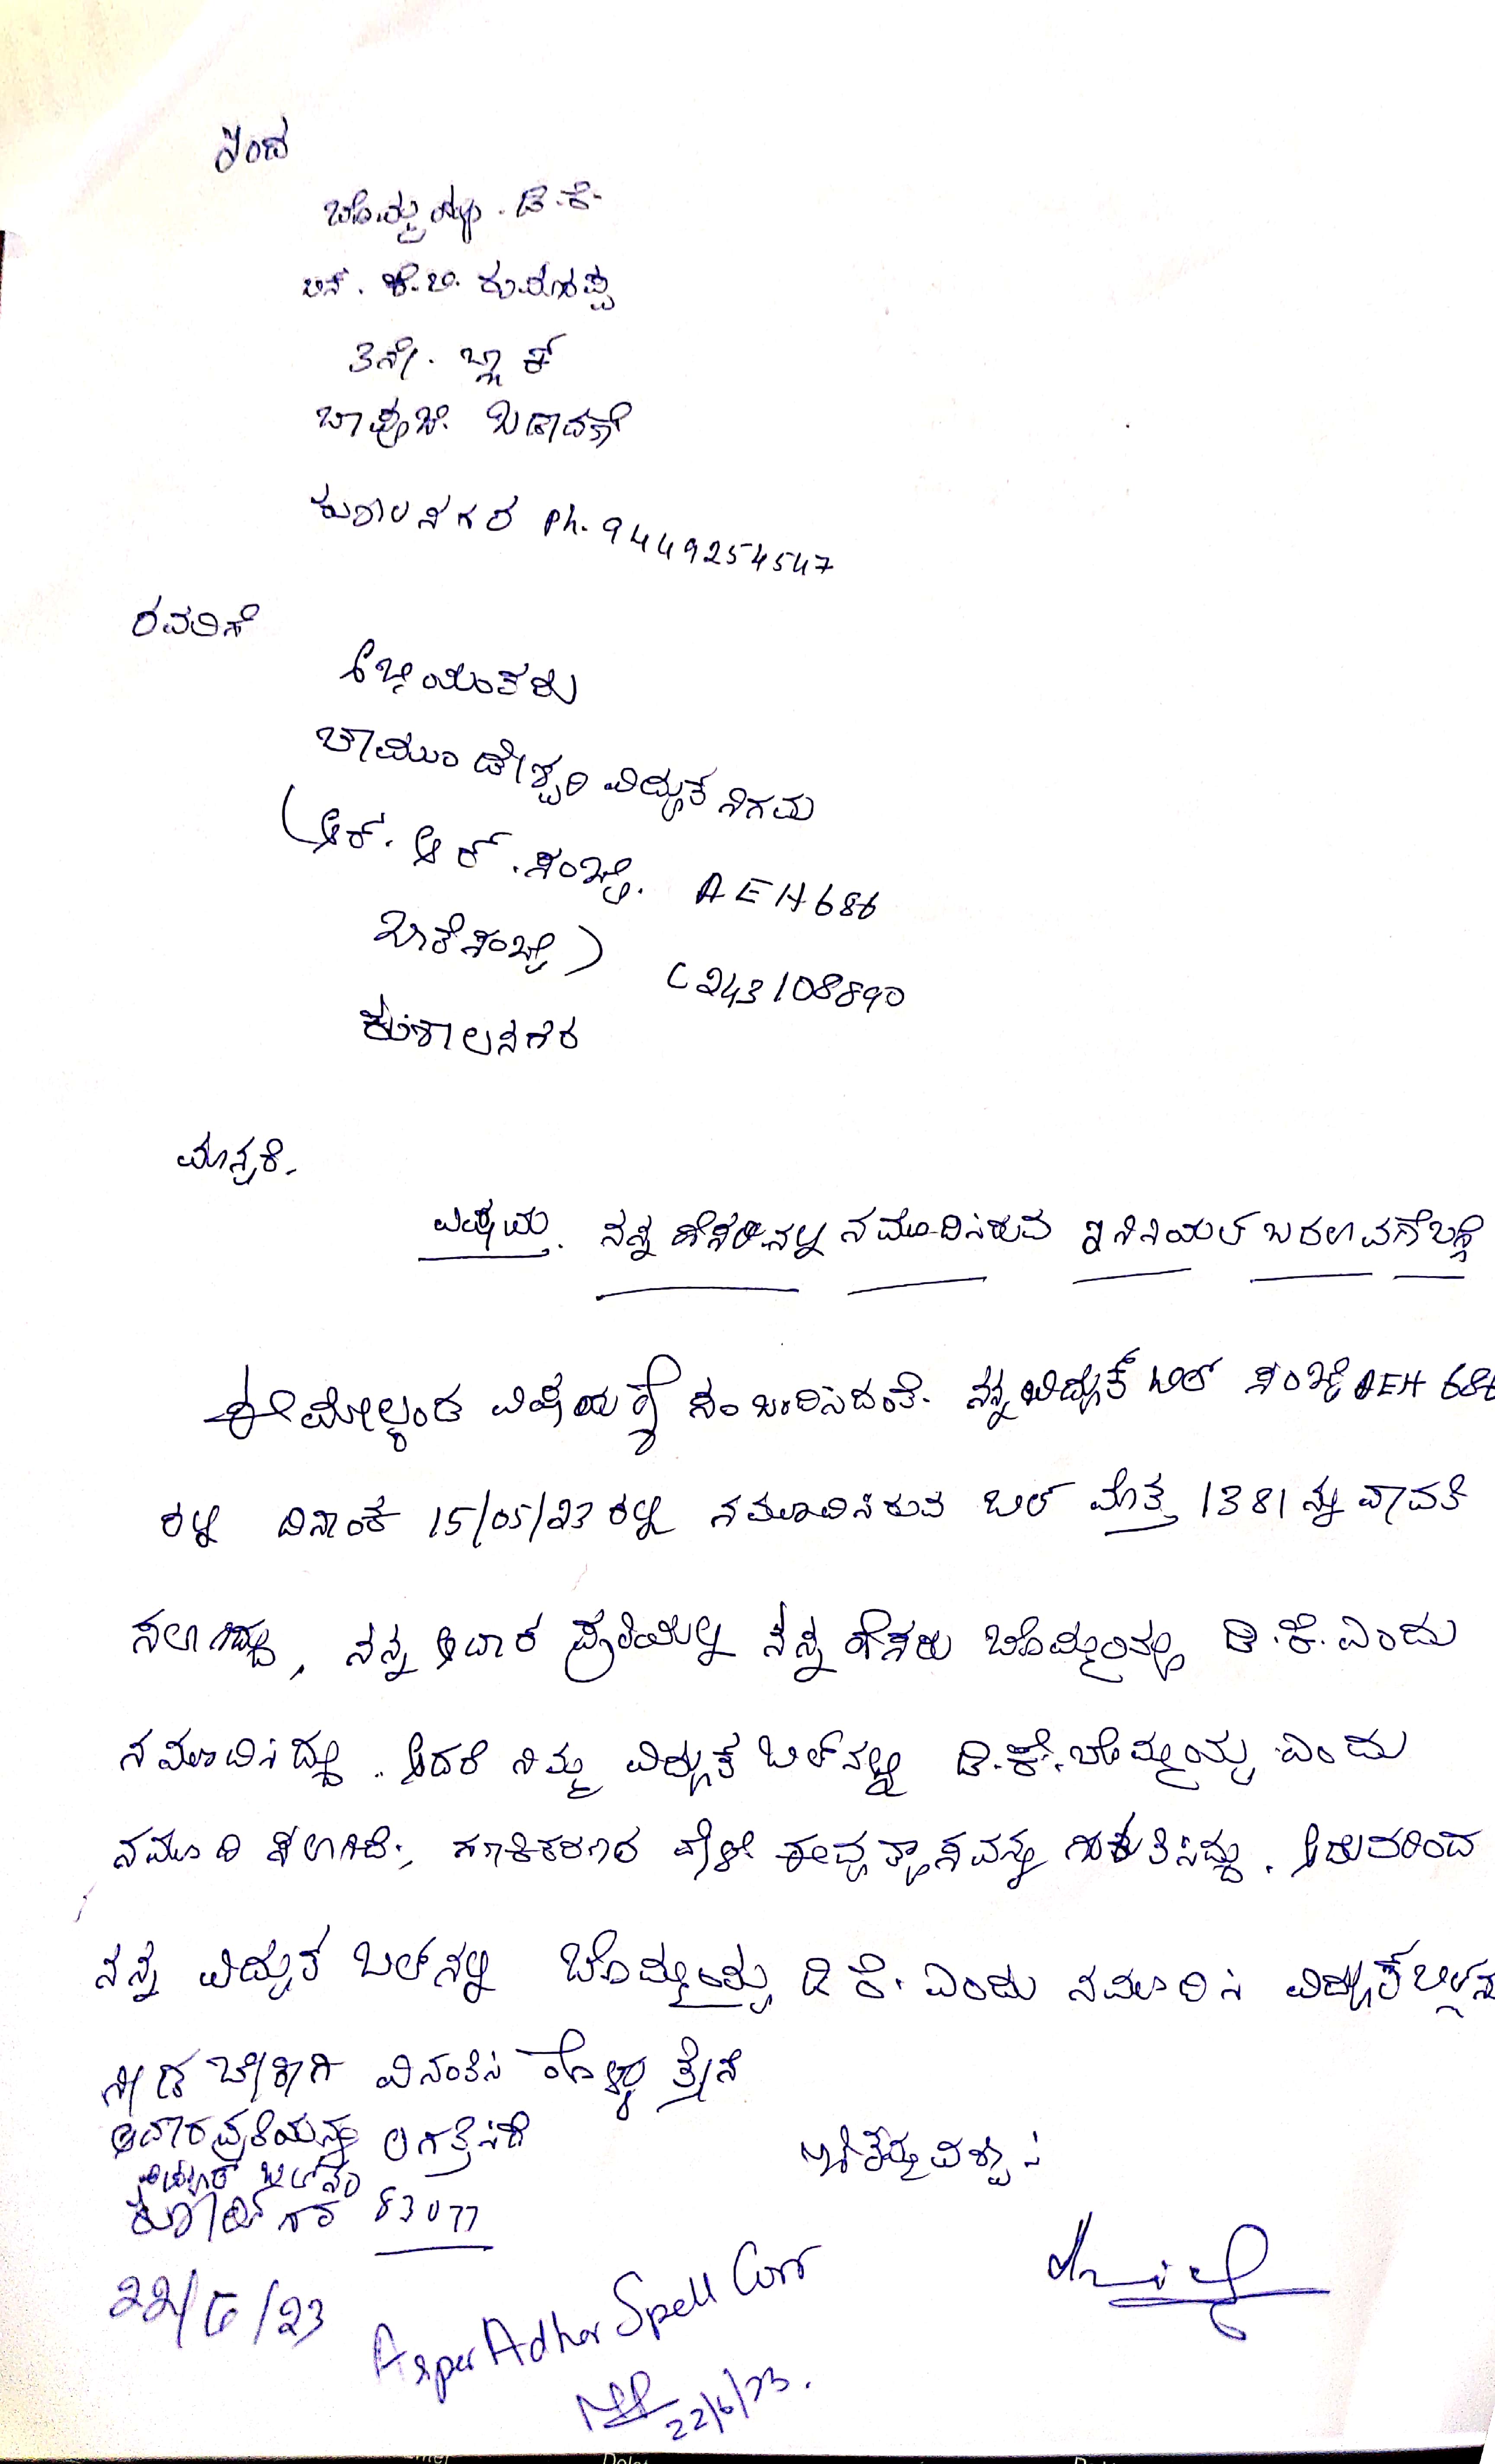 ಇಂದ
ಬೊಮ್ಮಯ್ಯ. ಡಿ.ಕೆ.
ಬಿನ್. ಕೆ.ಬಿ. ಕುಮಾರಪ್ಪ
3ನೇ. ಬ್ಲಾಕ್
ಬಾಪೂಜಿ ಬಡಾವಣೆ
ಕುಶಾಲನಗರ Ph. 9449254547
ರವರಿಗೆ
ಅಭಿಯಂತರು
ಚಾಮುಂಡೇಶ್ವರಿ ವಿದ್ಯುತ ನಿಗಮ
(ಆರ್. ಆರ್. ಸಂಖ್ಯೆ. AEH 686
ಖಾತೆಸಂಖ್ಯೆ) (243108890
ಕುಶಾಲನಗರ
ಮಾನ್ಯರೆ.
ವಿಷಯ. ನನ್ನ ಹೆಸರಿನಲ್ಲಿ ನಮೂದಿಸಿರುವ ಇನಿಸಿಯಲ್ ಬದಲಾವಣೆ ಬಗ್ಗೆ
ಈ ಮೇಲ್ಕಂಡ ವಿಷಯಕ್ಕೆ ಸಂಬಂದಿಸಿದಂತೆ. ನನ್ನ ವಿದ್ಯುತ್ ಬಿಲ್ ಸಂಖ್ಯೆ AEH 686
ರಲ್ಲಿ ದಿನಾಂಕ 15/05/23 ರಲ್ಲಿ ನಮೂದಿಸಿರುವ ಬಿಲ್ ಮೊತ್ತ 1381 ನ್ನು ಪಾವತಿ
ಸಲಾಗಿದ್ದು, ನನ್ನ ಆದಾರ ಪ್ರತಿಯಲ್ಲಿ ನನ್ನ ಹೆಸರು ಬೊಮ್ಮಯ್ಯ ಡಿ.ಕೆ. ಎಂದು
ನಮೂದಿಸಿದ್ದು. ಆದರೆ ನಿಮ್ಮ ವಿದ್ಯುತ ಬಿಲ್‌ನಲ್ಲಿ ಡಿ.ಕೆ. ಬೊಮ್ಮಯ್ಯ ಎಂದು
ನಮೂದಿಸಲಾಗಿದೆ., ಈ ವ್ಯತ್ಯಾಸವನ್ನು ಗುರುತಿಸಿದ್ದು. ಆದುದರಿಂದ
ನನ್ನ ವಿದ್ಯುತ ಬಿಲ್‌ನಲ್ಲಿ ಬೊಮ್ಮಯ್ಯ ಡಿ ಕೆ. ಎಂದು ನಮೂದಿಸಿ ವಿದ್ಯುತ್ ಬಿಲ್ಲನ್ನ
ನೀಡಬೇಕಾಗಿ ವಿನಂತಿಸಿ ಕೊಳ್ಳುತ್ತೇನೆ
ಆದಾರಪ್ರತಿಯನ್ನು ಲಗತ್ತಿಸಿದೆ
ವಿದ್ಯುತ್ ಬಿಲ್‌ನಂ
83077
22/6/23
As per Adhar Spell Corr
22/6/23.